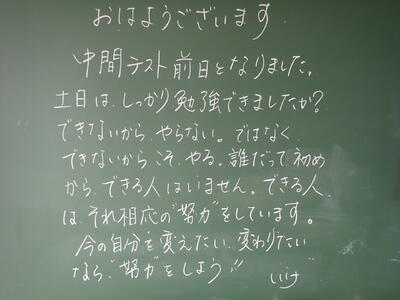 おはようございます.
中間テスト前日となりました。
土日は、しっかり勉強できましたか?
できないから、やらない。ではなく、
できないからこそ、やる。誰だって初め
から、できる人はいません。できる人
は、それ相応の"努力"をしています。
今の自分を変えたい、変わりたい
なら、"努力"をしよう!!